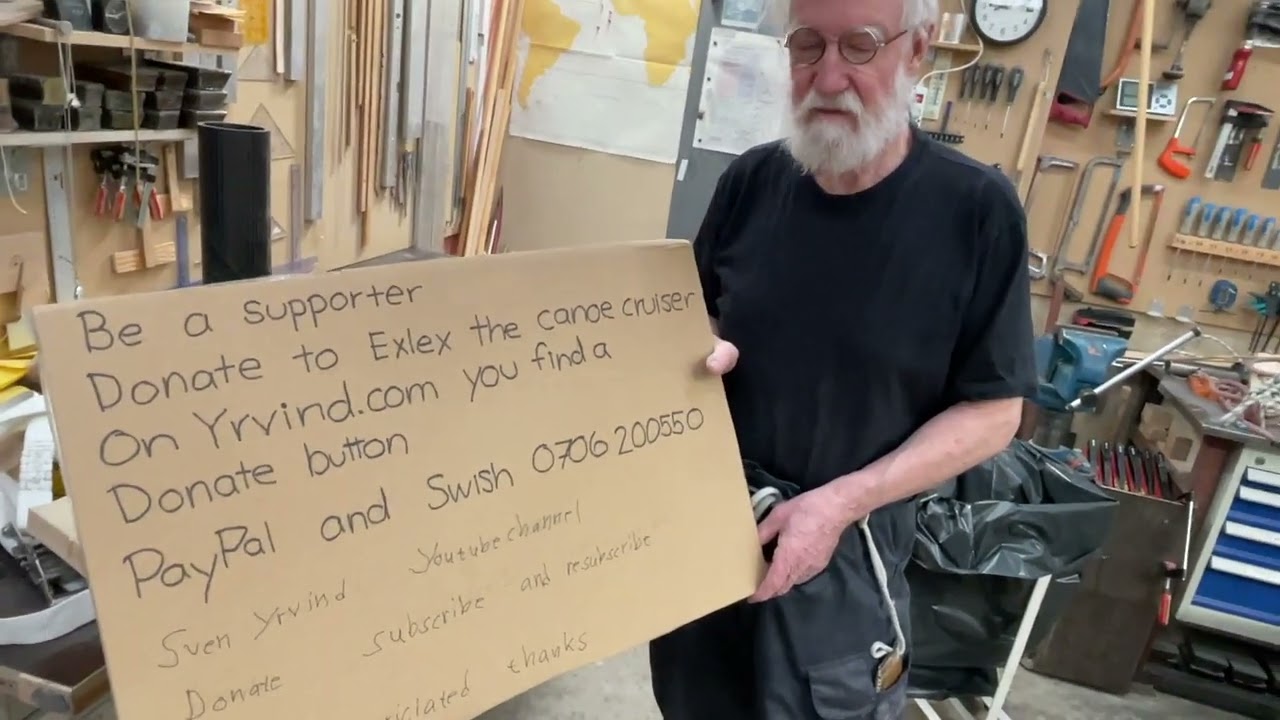 Be a supporter
Donate to Exlex the canoe cruiser
On Yrvind.com you find a
Donate button
PayPal and Swish 0706 200550
Sven Yrvind Youtube channel
Donate subscribe and resubscribe
thanks